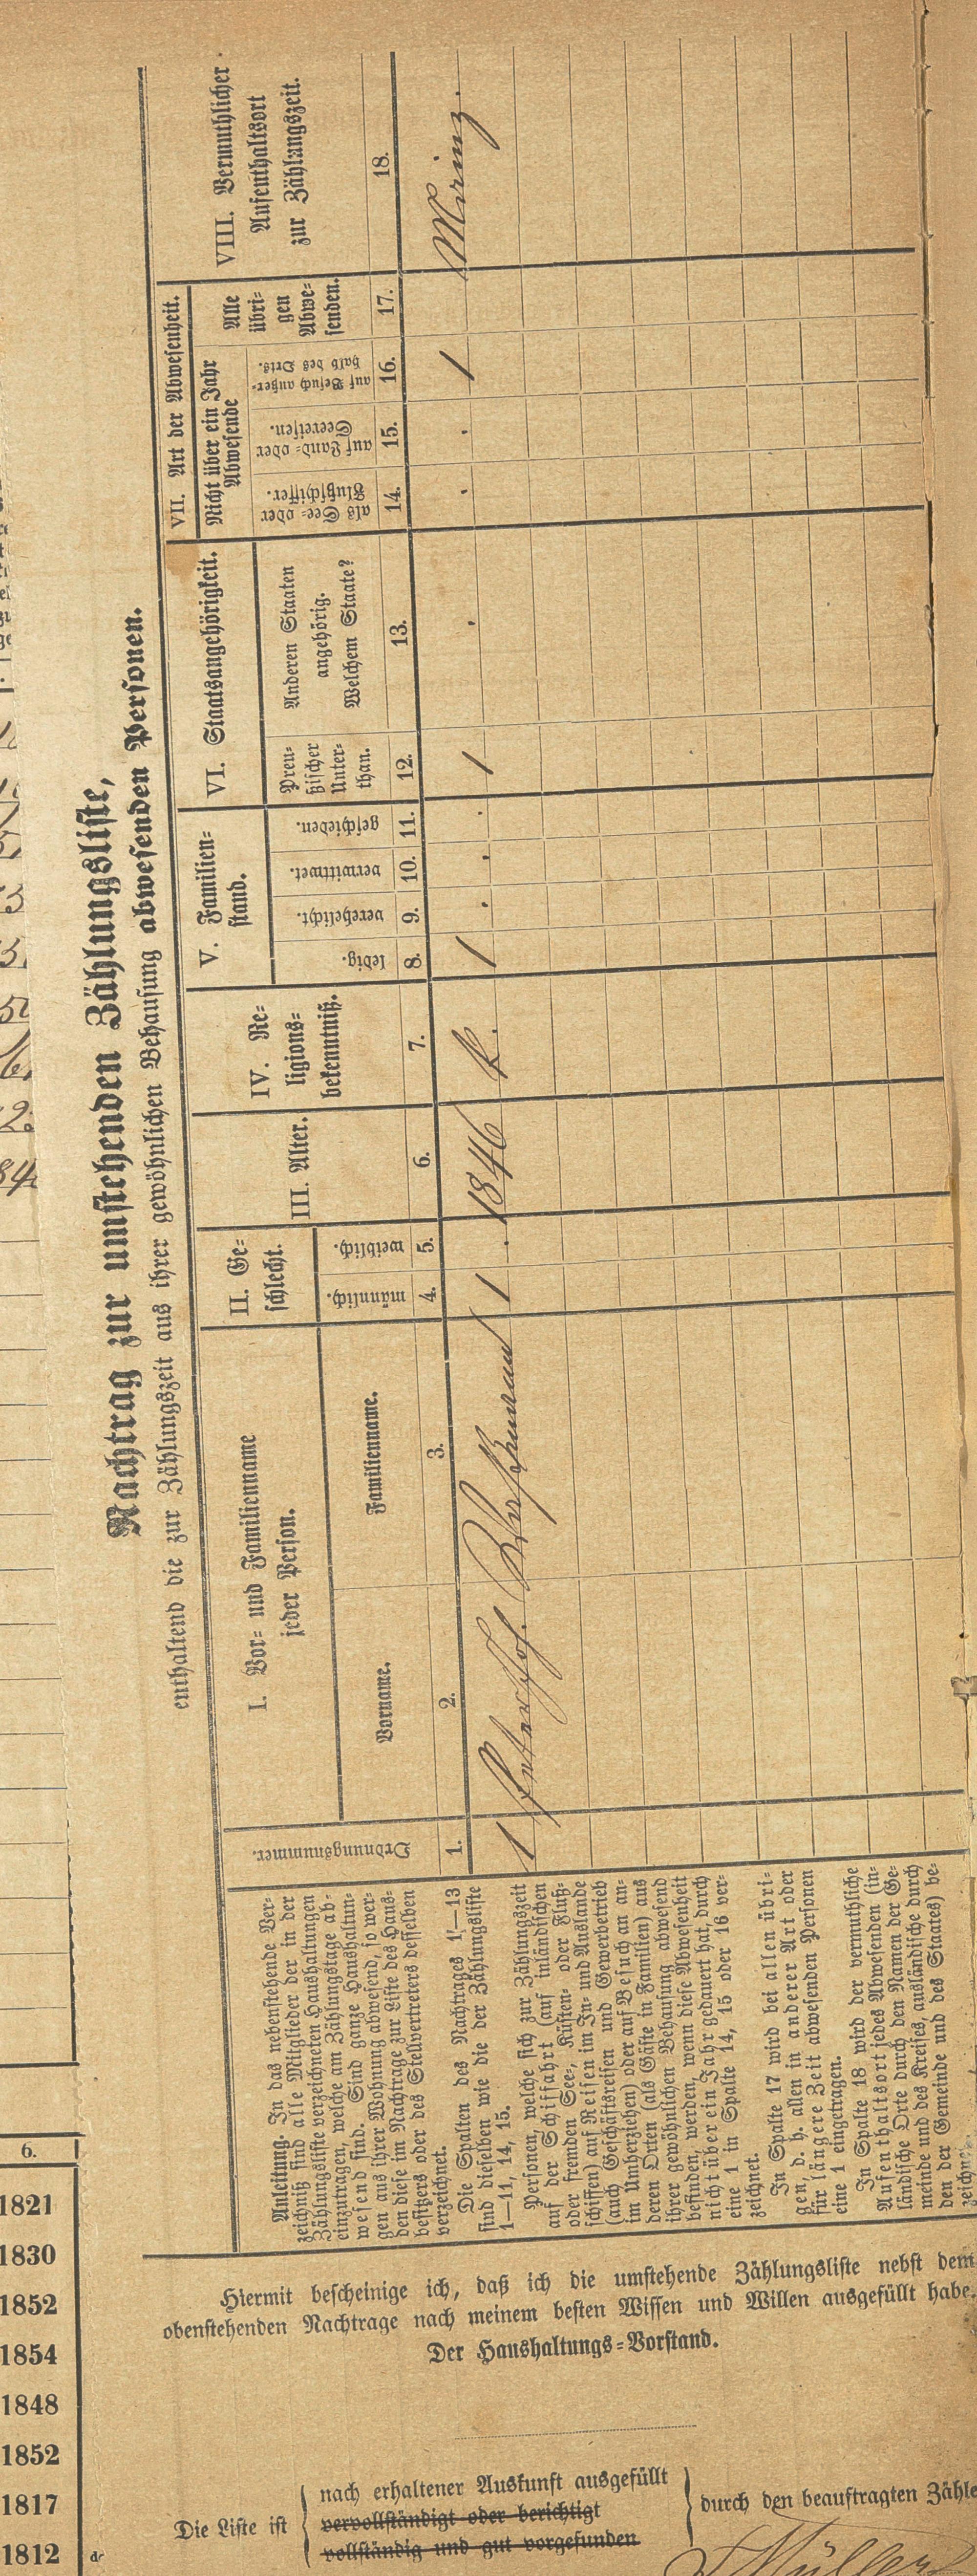 Nachtrag zur umstehenden Zählungsliste,
enthaltend die zur Zählungszeit aus ihrer gewöhnlichen Behausung abwesenden Personen.
Anleitung. In das nebenstehende Ver-
zeichniß sind alle Mitglieder der in der
Zählungsliste verzeichneten Haushaltungen
einzutragen, welche am Zählungstage ab-
wesend sind. Sind ganze Haushaltun-
gen aus ihrer Wohnung abwesend, so wer-
den diese im Nachtrage zur Liste des Haus-
besitzers oder des Stellvertreters desselben
verzeichnet.
Die Spalten des Nachtrages 1—13
sind dieselben wie die der Zählungsliste
1—11, 14, 15.
Personen, welche sich zur Zählungszeit
auf der Schiffahrt (auf inländischen
oder fremden See-, Küsten- oder Fluß-
schiffen) auf Reisen im In- und Auslande
(auch Geschäftsreisen und Gewerbebetrieb
im Umherziehen) oder auf Besuch an an-
deren Orten (als Gäste in Familien) aus
ihrer gewöhnlichen Behausung abwesend
befinden, werden, wenn diese Abwesenheit
nicht über ein Jahr gedauert hat, durch
eine 1 in Spalte 14, 15 oder 16 ver-
zeichnet.
In Spalte 17 wird bei allen übri-
gen, d. h. allen in anderer Art oder
für längere Zeit abwesenden Personen
eine 1 eingetragen.
In Spalte 18 wird der vermuthliche
Aufenthaltsort jedes Abwesenden (in-
ländische Orte durch den Namen der Ge-
meinde und des Kreises, ausländische durch
den der Gemeinde und des Staates) be-
zeichnet.
Ordnungsnummer.
I. Vor- und Familienname
jeder Person.
Vorname.
Familienname.
II. Ge-
schlecht.
männlich.
weiblich.
III. Alter.
IV. Re-
ligions-
bekenntniß.
V. Familien-
stand.
ledig.
verehelicht.
verwittwet.
geschieden.
VI. Staatsangehörigkeit.
Preu-
ßischer
Unter-
than.
Anderen Staaten
angehörig.
Welchem Staate?
VII. Art der Abwesenheit.
Nicht über ein Jahr
Abwesende
als See- oder
Flußschiffer.
auf Land- oder
Seereisen.
auf Besuch außer-
halb des Orts.
Alle
übri-
gen
Abwe-
senden.
VIII. Vermuthlicher
Aufenthaltsort
zur Zählungszeit.
1. 2. 3. 4. 5. 6. 7. 8. 9. 10. 11. 12. 13. 14. 15. 16. 17. 18.
1 1 . 1846 K. 1 . . . 1 . . . 1
Hiermit bescheinige ich, daß ich die umstehende Zählungsliste nebst dem
obenstehenden Nachtrage nach meinem besten Wissen und Willen ausgefüllt habe.
Der Haushaltungs-Vorstand.
Die Liste ist
nach erhaltener Auskunft ausgefüllt
vervollständigt oder berichtigt
vollständig und gut vorgefunden
durch den beauftragten Zähle
Müller
6.
1821
1830
1852
1854
1848
1852
1817
1812